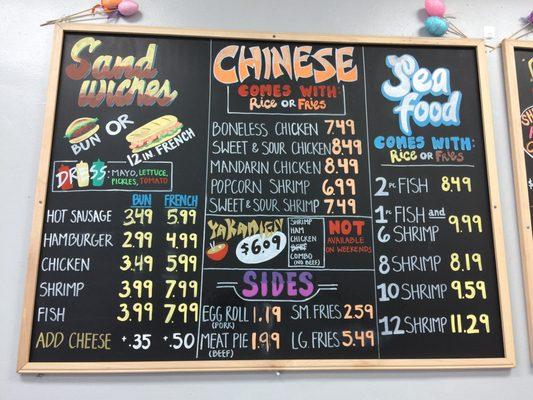 Sandwiches
BUN OR 12 IN FRENCH
DRESS: MAYO, LETTUCE,
PICKLES, TOMATO
BUN FRENCH
HOT SAUSAGE 3.49 5.99
HAMBURGER 2.99 4.99
CHICKEN 3.49 5.99
SHRIMP 3.99 7.99
FISH 3.99 7.99
ADD CHEESE +.35 +.50
CHINESE
COMES WITH:
RICE OR FRIES
BONELESS CHICKEN 7.49
SWEET & SOUR CHICKEN 8.49
MANDARIN CHICKEN 8.49
POPCORN SHRIMP 6.99
SWEET & SOUR SHRIMP 7.49
YAKAMEIN
$6.09
SHRIMP
HAM
CHICKEN
BEEF
COMBO
(NO BEEF)
NOT
AVAILABLE
ON WEEKENDS
SIDES
EGG ROLL 1.19 SM. FRIES 2.59
(PORK)
MEAT PIE 1.99 LG. FRIES 5.49
(BEEF)
Sea
food
COMES WITH:
RICE OR FRIES
2 PC FISH 8.49
1 PC FISH AND
6 SHRIMP 9.99
8 SHRIMP 8.19
10 SHRIMP 9.59
12 SHRIMP 11.29